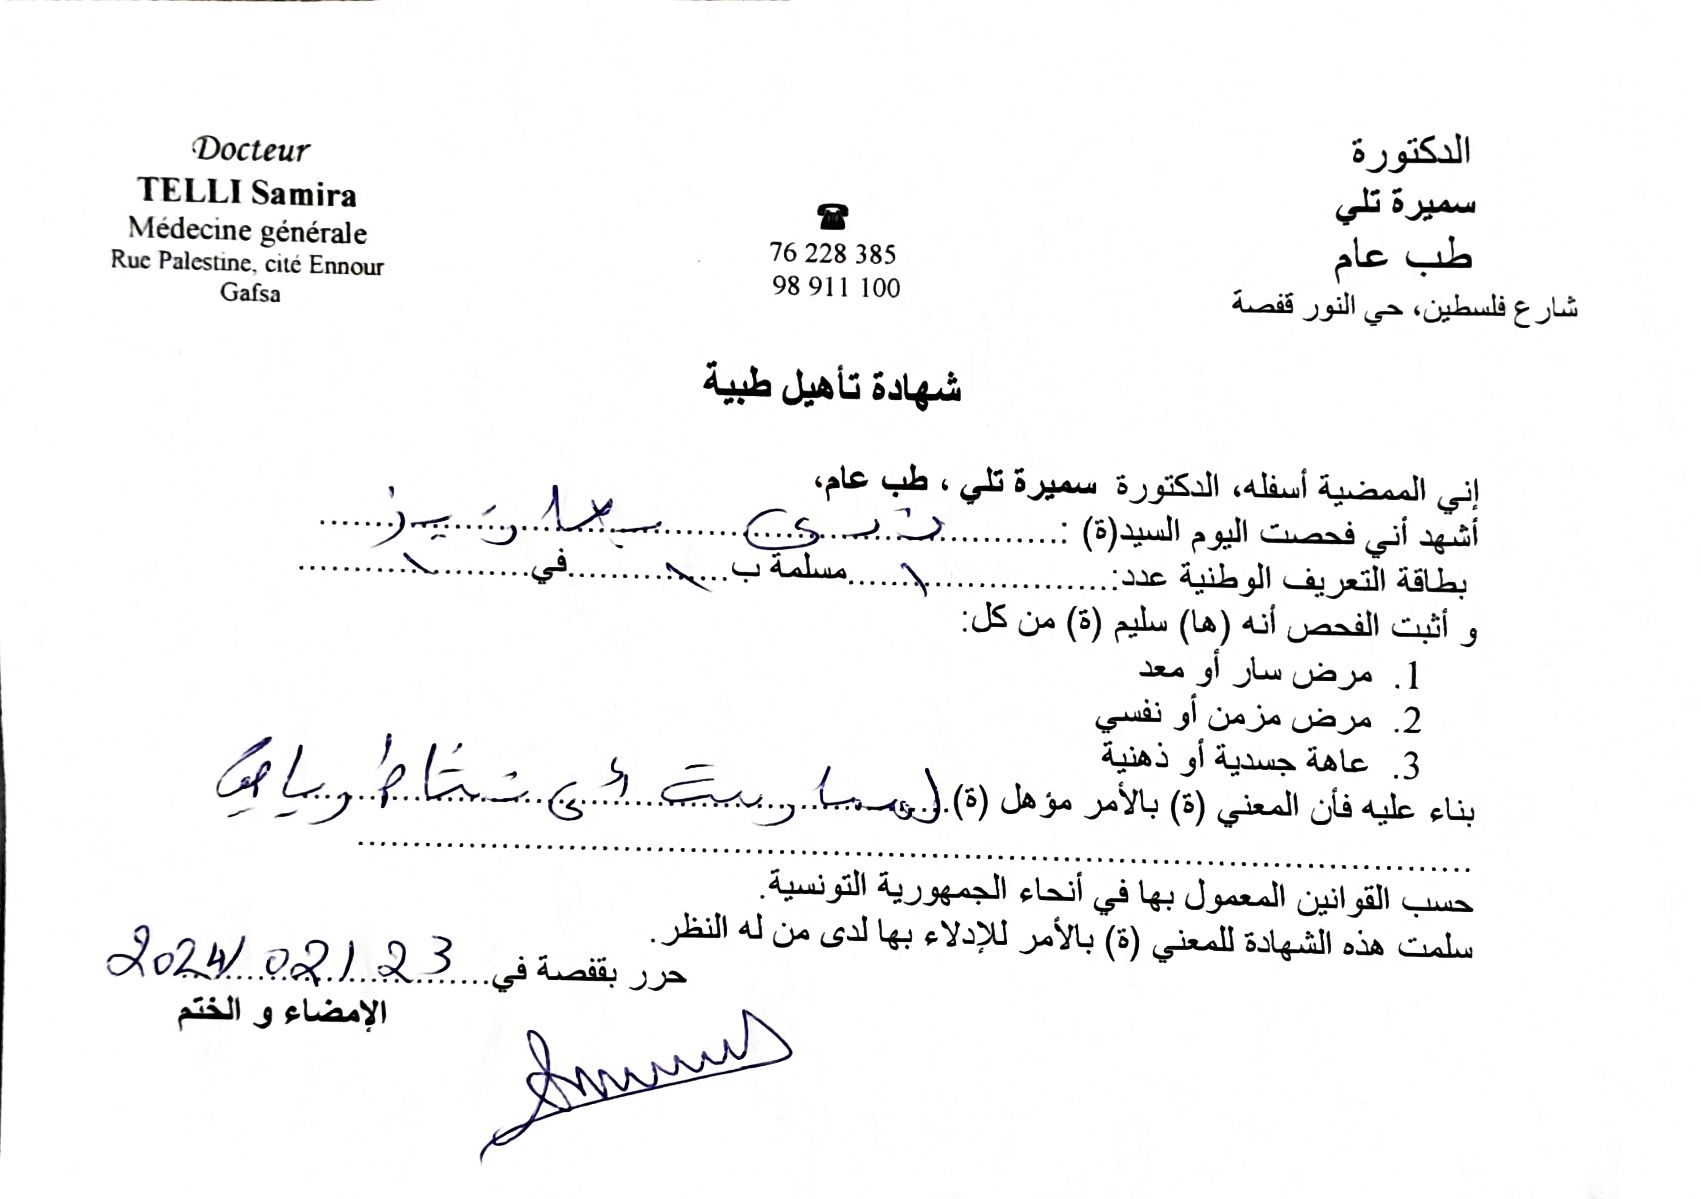 Docteur
TELLI Samira
Médecine générale
Rue Palestine, cité Ennour
Gafsa
☎
76 228 385
98 911 100
الدكتورة
سميرة تلي
طب عام
شارع فلسطين، حي النور قفصة
شهادة تأهيل طبية
إني الممضية أسفله، الدكتورة سميرة تلي ، طب عام،
أشهد أني فحصت اليوم السيد(ة) :
بطاقة التعريف الوطنية عدد: \ مسلمة ب \ في \
و أثبت الفحص أنه (ها) سليم (ة) من كل:
1. مرض سار أو معد
2. مرض مزمن أو نفسي
3. عاهة جسدية أو ذهنية
بناء عليه فأن المعني (ة) بالأمر مؤهل (ة) لممارسة أي نشاط رياضي
حسب القوانين المعمول بها في أنحاء الجمهورية التونسية.
سلمت هذه الشهادة للمعني (ة) بالأمر للإدلاء بها لدى من له النظر.
حرر بقفصة في 23 / 02 / 2024
الإمضاء و الختم